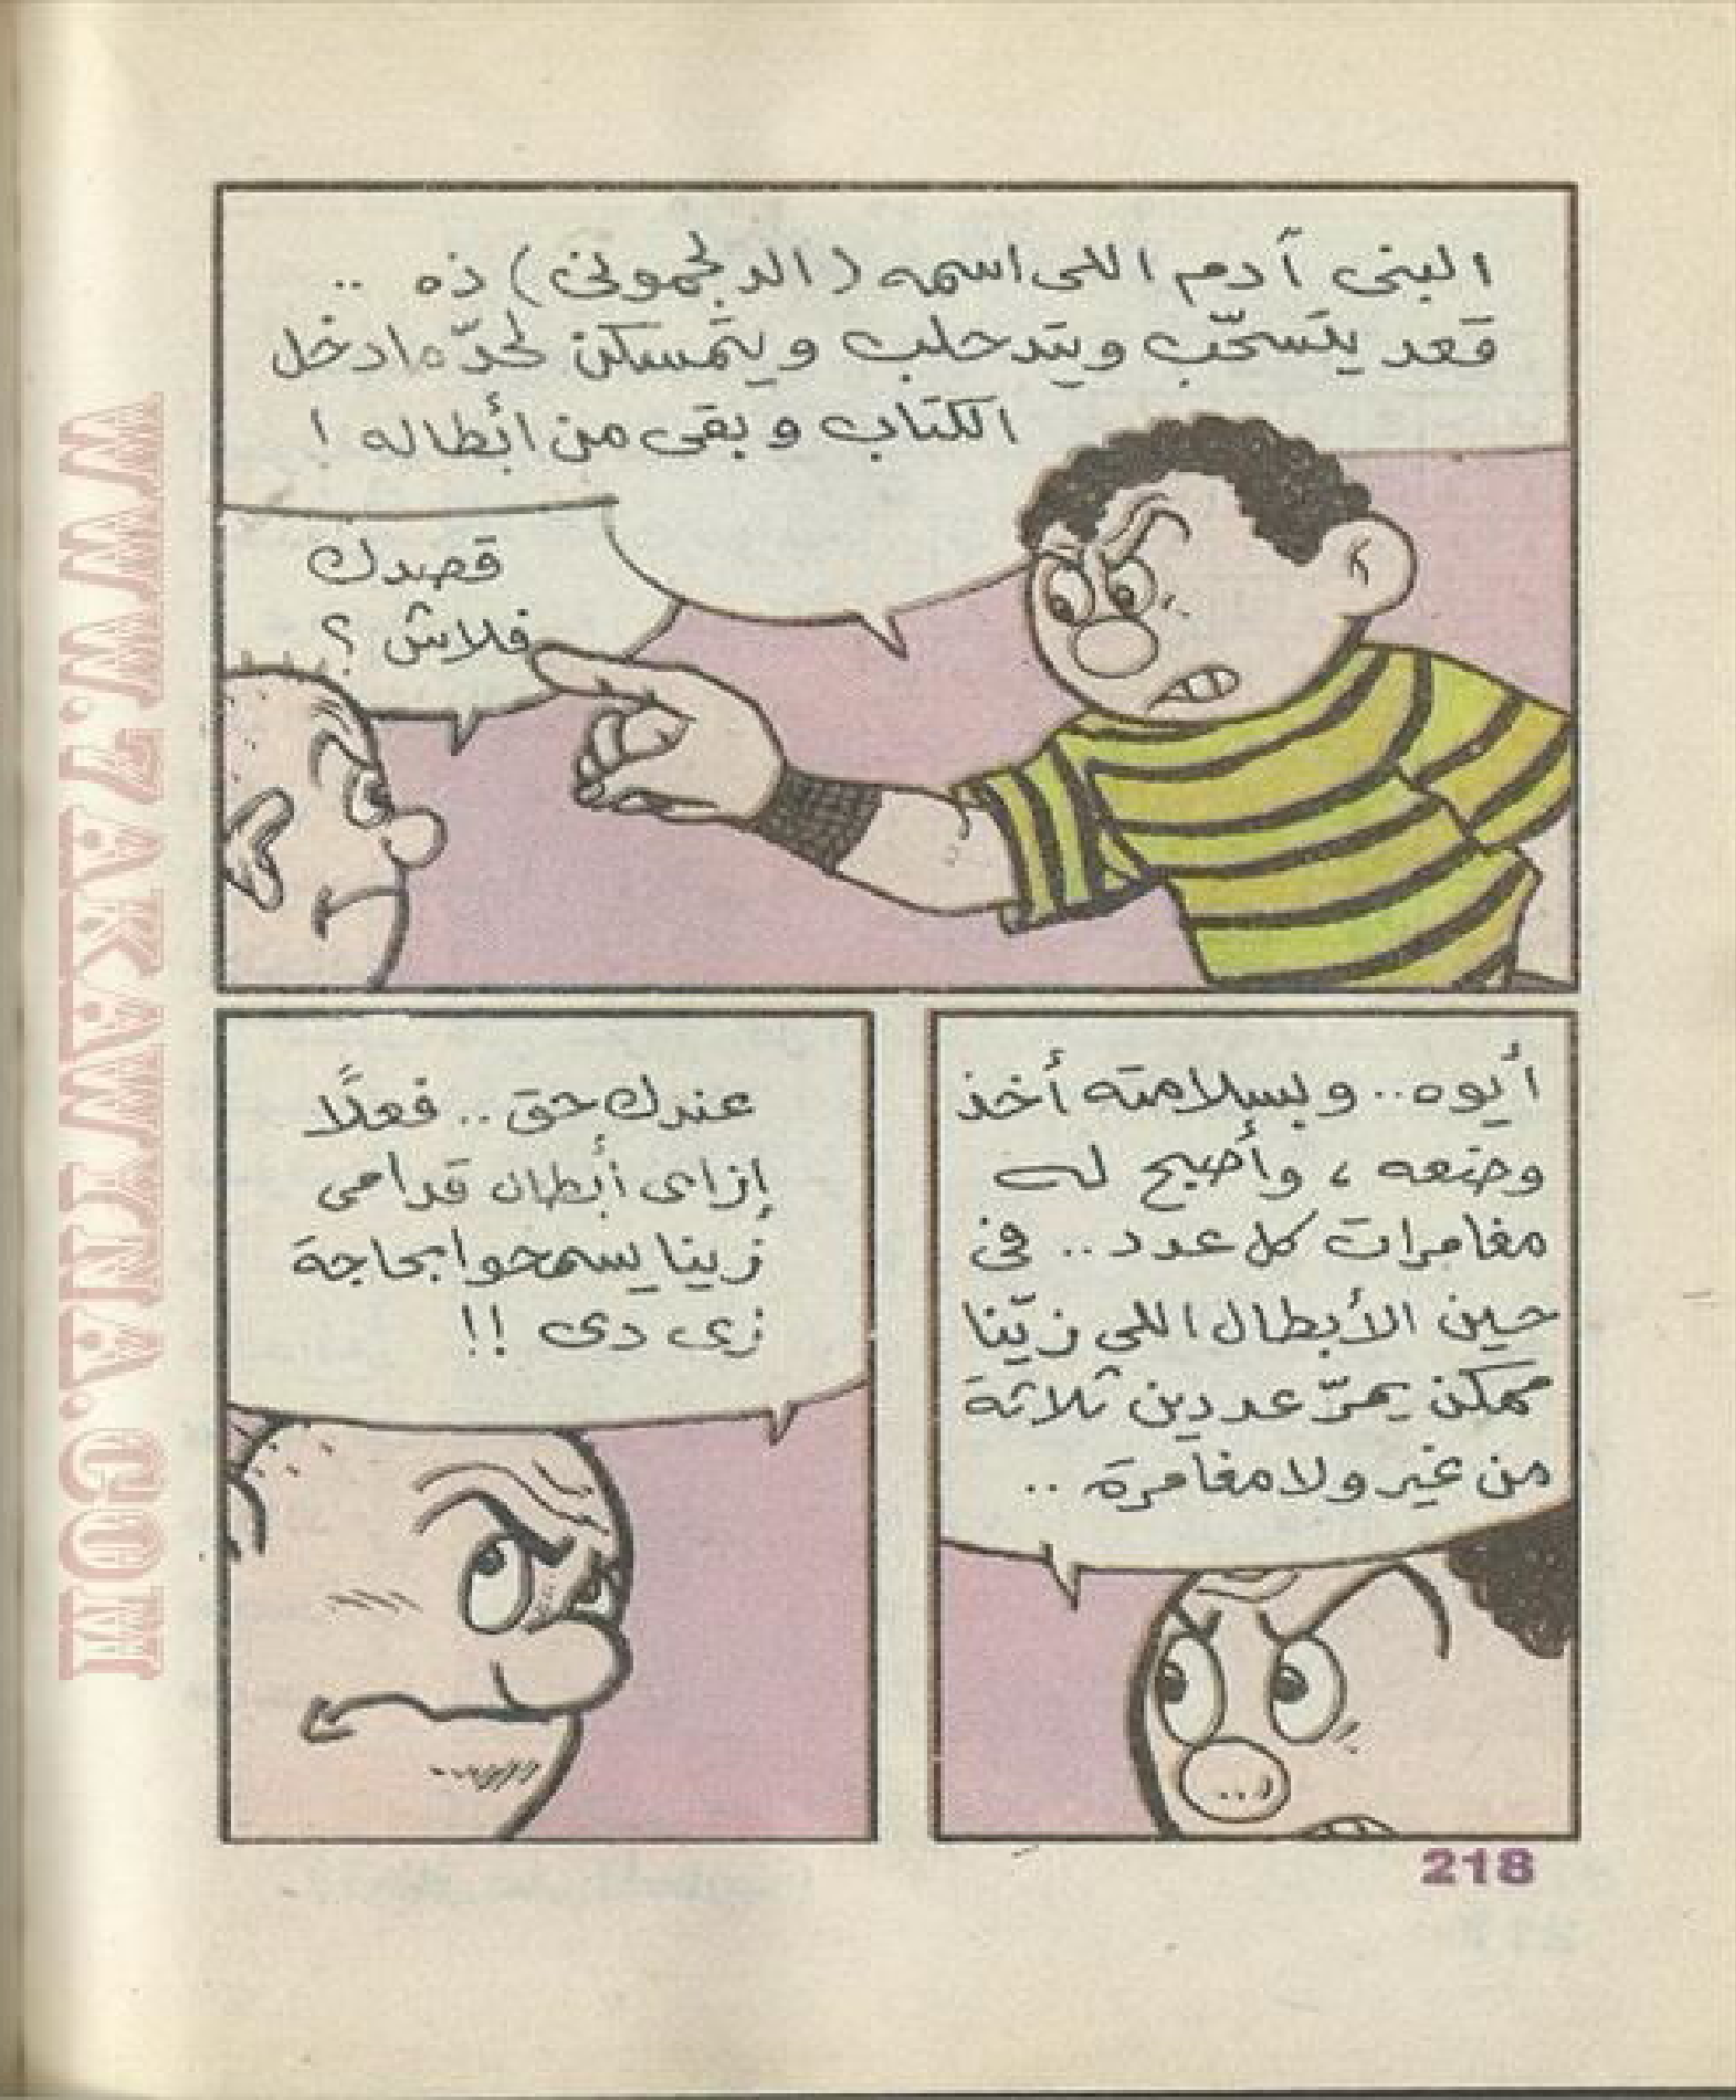 البنى آدم اللى اسمه (الدلجمونى) ده ..
قعد يتسحّب ويتدحلب ويتمسكن لحدّ ما دخل
الكتاب وبقى من أبطاله !
قصدك
فلاش ؟
أيوه .. وبسلامته أخذ
وضعه ، وأصبح له
مغامرات كل عدد .. فى
حين الأبطال اللى زيّنا
ممكن يمرّ عددين ثلاثة
من غير ولا مغامرة ..
عندك حق .. فعلًا
إزاى أبطال قدامى
زينا يسمحوا بحاجة
زى دى !!
218
WWW.7AKAWTNA.COM